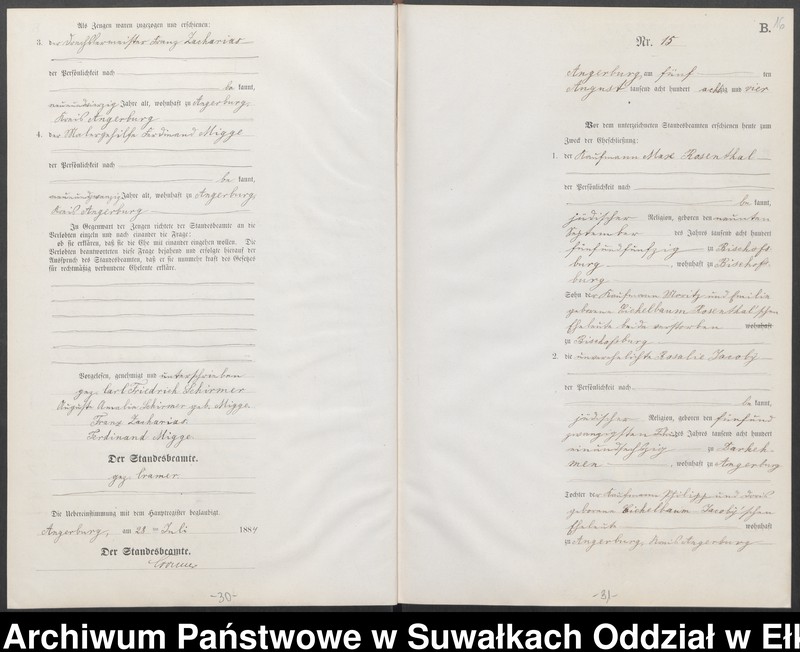 Als Zeugen waren zugezogen und erschienen:
3. der Drechslermeister Franz Zacharias
der Persönlichkeit nach
be kannt,
Jahre alt, wohnhaft zu Angerburg,
Kreis Angerburg
4. der Malergehilfe Ferdinand Migge
der Persönlichkeit nach
be kannt,
neunundzwanzig Jahre alt, wohnhaft zu Angerburg,
Kreis Angerburg
In Gegenwart der Zeugen richtete der Standesbeamte an die
Verlobten einzeln und nach einander die Frage:
ob sie erklären, daß sie die Ehe mit einander eingehen wollen. Die
Verlobten beantworteten diese Frage bejahend und erfolgte hierauf der
Ausspruch des Standesbeamten, daß er sie nunmehr kraft des Gesetzes
für rechtmäßig verbundene Eheleute erkläre.
Vorgelesen, genehmigt und unterschrieben
gez. Carl Friedrich Schirmer
August Amalie Schirmer geb. Migge.
Franz Zacharias.
Ferdinand Migge.
Der Standesbeamte.
gez. Cramer
Die Uebereinstimmung mit dem Hauptregister beglaubigt.
Angerburg, am 28 ten Juli 1884
Der Standesbeamte.
Cramer
-30-
B.
Nr. 15
Angerburg, am fünf ten
August tausend acht hundert achtzig und vier
Vor dem unterzeichneten Standesbeamten erschienen heute zum
Zweck der Eheschließung:
1. der Kaufmann Max Rosenthal
der Persönlichkeit nach
be kannt,
jüdischer Religion, geboren den neunten
September des Jahres tausend acht hundert
fünfundfünfzig zu Bischofs
burg, wohnhaft zu Bischofs
burg
Sohn der Kaufmann Moritz und Emilie
geborene Eichelbaum Rosenthal'schen
Eheleute beide verstorben wohnhaft
zu Bischofsburg
2. die unverehelichte Rosalie Jacoby
der Persönlichkeit nach
be kannt,
jüdischer Religion, geboren den fünfund
zwanzigsten des Jahres tausend acht hundert
einundsechzig zu Darkeh
men, wohnhaft zu Angerburg
Tochter der Kaufmann Philipp und
geborene Eichelbaum Jacoby'schen
Eheleute wohnhaft
zu Angerburg, Kreis Angerburg
-31-
Archiwum Państwowe w Suwałkach Oddział w Ełk